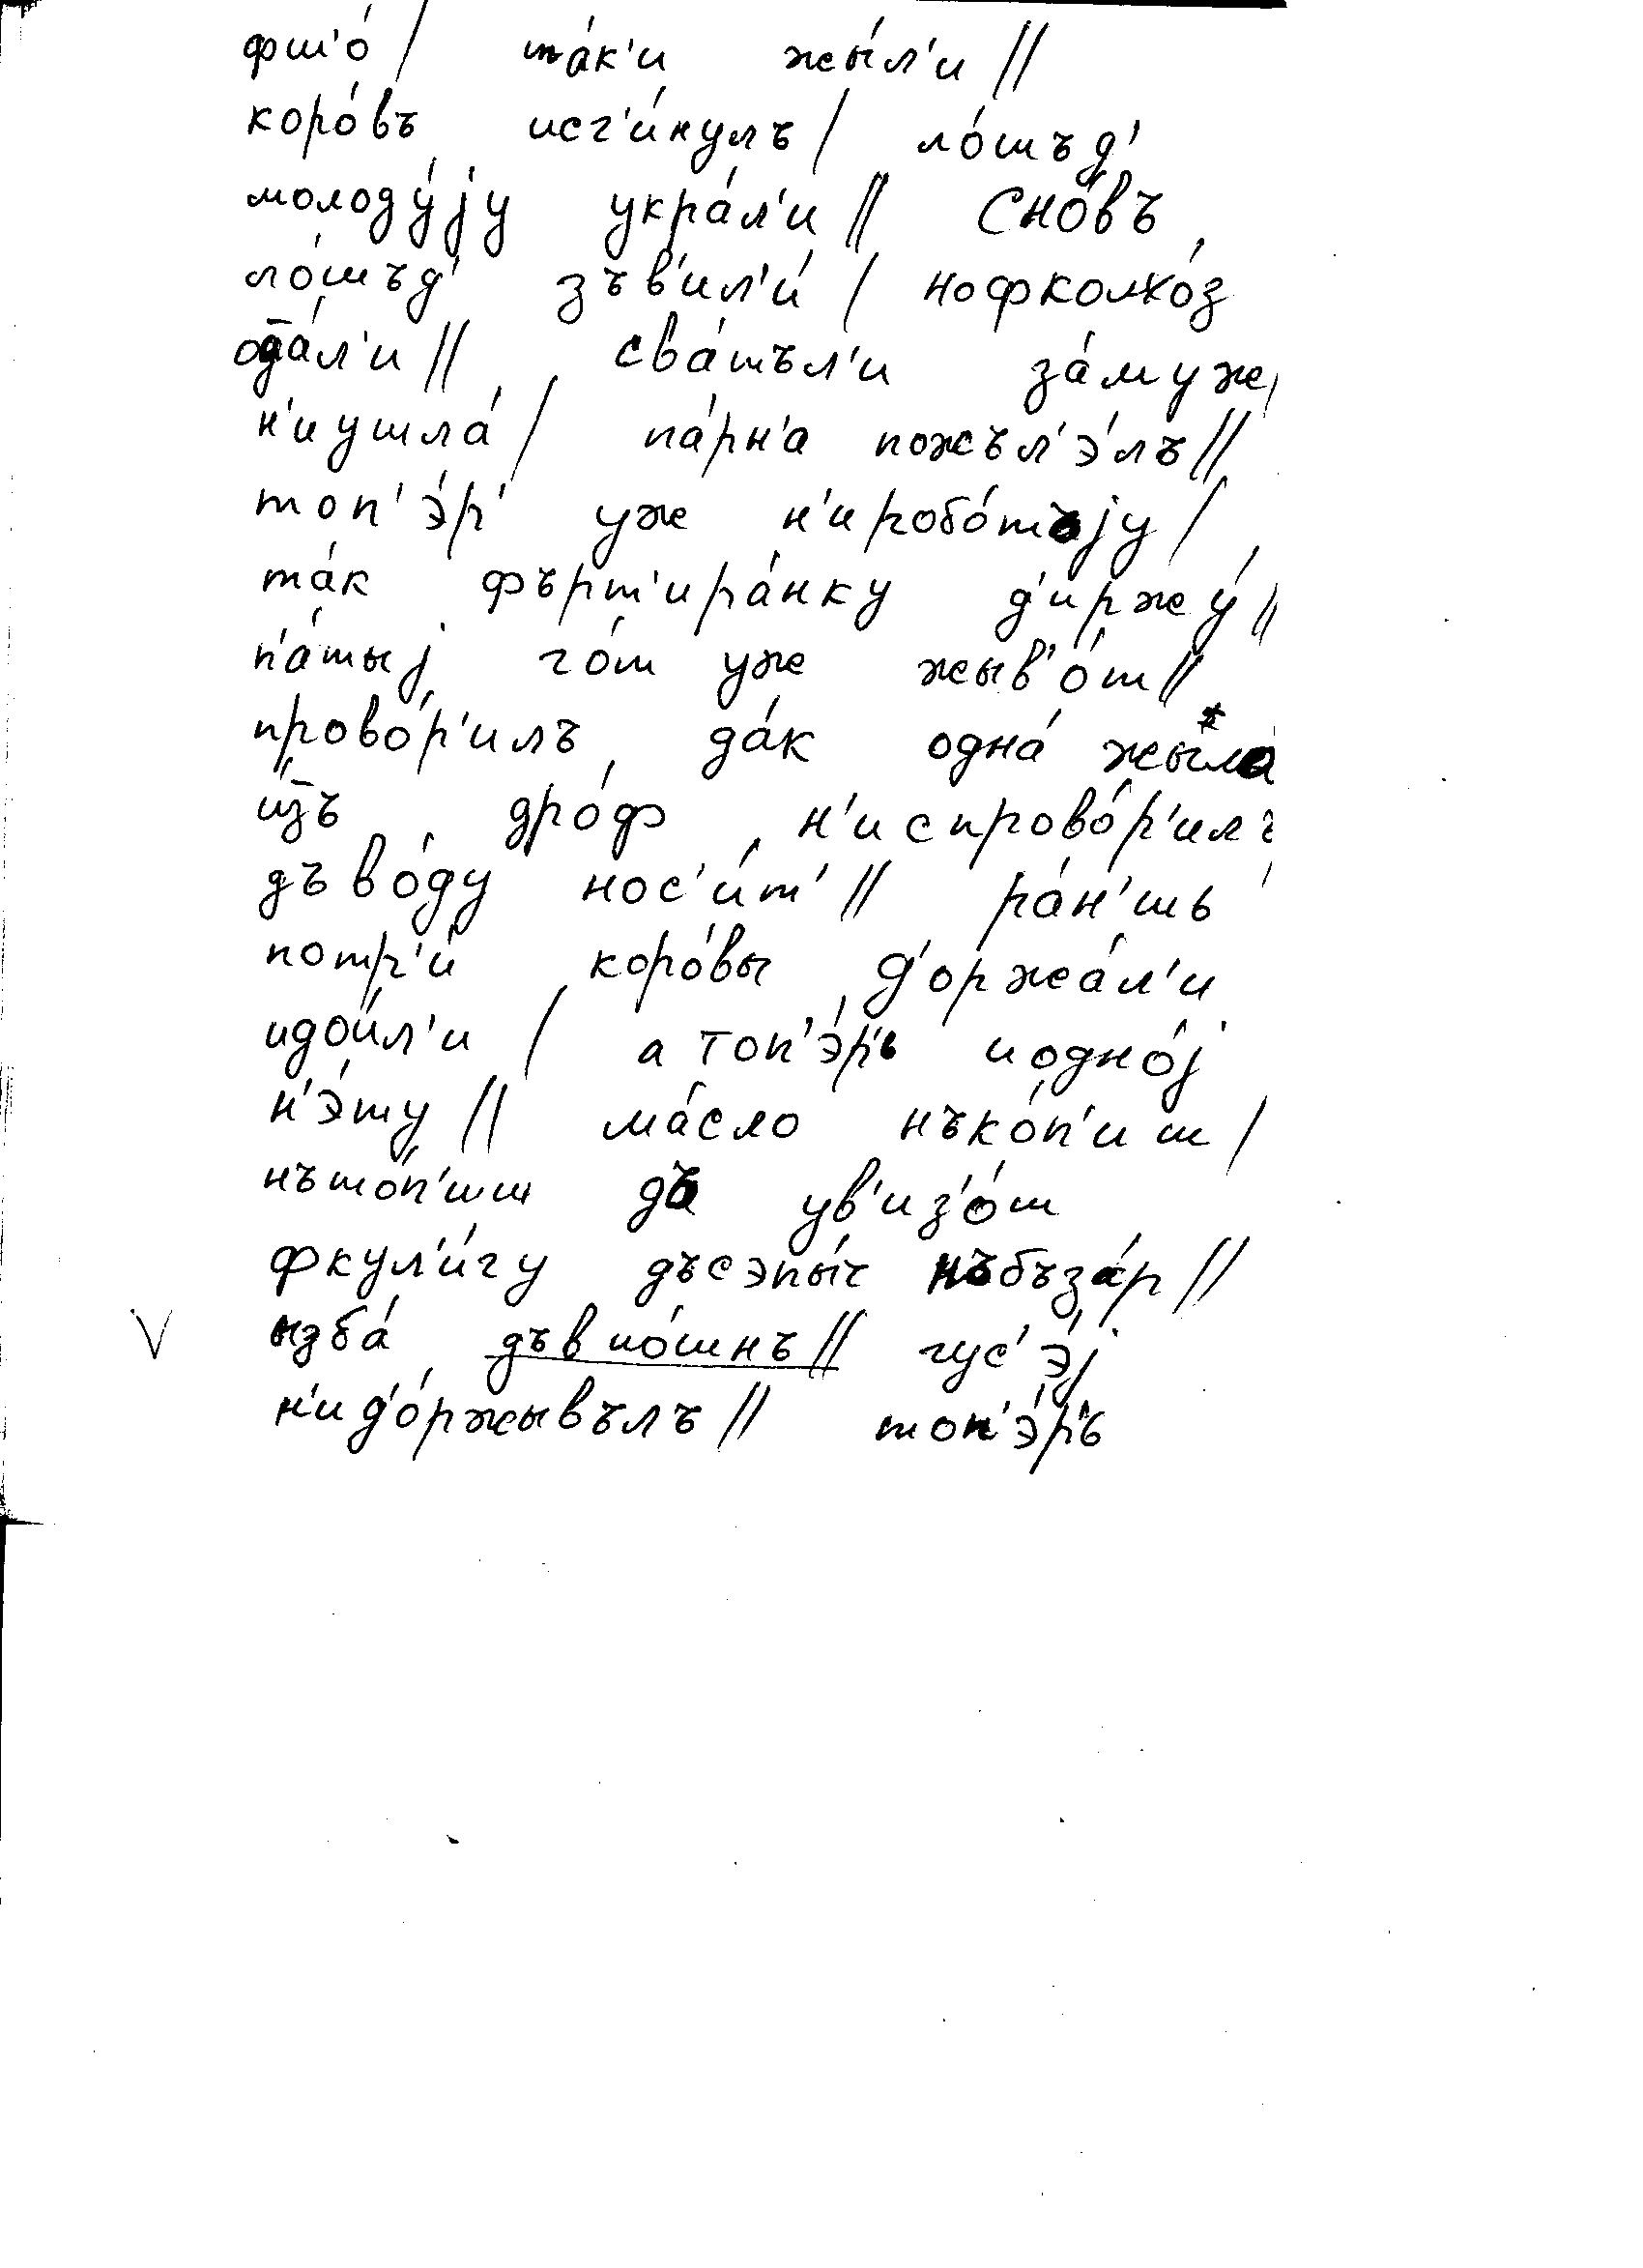 фш'о́/ та́к'и жы́л'и //
коро́въ исг'и́нулъ/ ло́шъд'
молоду́jу укра́л'и // Сно́въ
ло́шъд' зъв'ил'и́ / нофколхо́з
од̄а́л'и // сва́тъл'и за́муж
н'иушла́ / па́рн'а пожъл'э́лъ//
топ'э́р' уж н'иробо́тъjу /
та́к фърт'ира́нку д'иржу́ //
п'а́тыj го́т уж жыв'о́т//
прово́р'илъ да́к одна́ жы́ла
из̄ъ дро́ф н'испрово́р'илъ
дъво́ду нос'и́т' // ра́н'шь
потр'и́ коро́вы д'оржа́л'и
идои́л'и / а топ'э́р'ь иодно́j
н'э́ту // ма́сло нъко́п'иш /
нъто́п'иш дъ ув'из'о́ш
фкул'и́гу дъсэпы́ч нъбъза́р //
ызба́ // гус'э́j
н'ид'о́ржывълъ // топ'э́р'ь